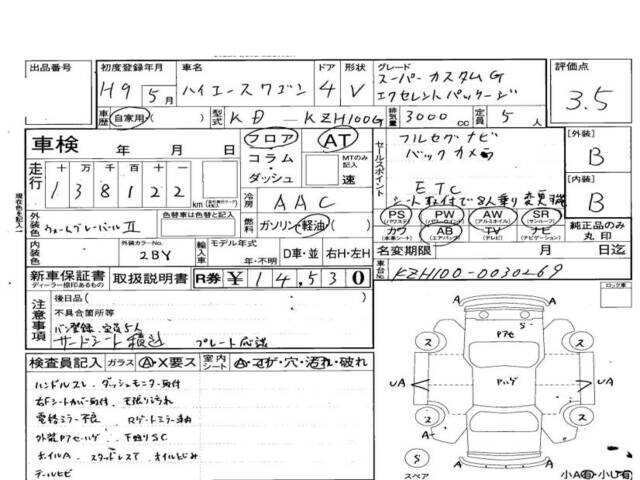 出品番号
初度登録年月 車名 ドア 形状 グレード 評価点
H9 5月 ハイエースワゴン 4 V スーパーカスタムG
エクセレントパッケージ
3.5
車歴 自家用 型式 KD - KZH100G 排気量 3000 cc 定員 5 人
車検 年 月 日 フロア AT
コラム・ダッシュ MTのみ記入 速
セールスポイント
フルセグナビ
バックカメラ
ETC
シート取付で8人乗り変更可能
[外装] B
[内装] B
走行 十万千百十一
138122 km
冷房 AAC
外装色 ウォームグレーパールII 色替車は色替と記入
燃料 ガソリン・軽油
PS PW AW SR 純正品のみ丸印
カワ AB TV ナビ
内装色 外装カラーNo. 2BY 輸入車 モデル年式 年・不明 D車・並 右H・左H
名変期限 月 日迄
新車保証書 取扱説明書 R券 ¥14,530
ディーラー捺印あるもの
車台No. KZH100-0030269
注意事項
後日品( )
不具合箇所等
バン登録、定員5人
サードシート積込 プレート応談
ロック車
検査員記入 ガラス A・X要ス 室内シート A・こげ・穴・汚れ・破れ
ハンドルスレ ダッシュモニター取付
右Fシートカバー取付 天張り汚れ
電格ミラー不良 Rゲートミラー凍
外装Pアセ・ハゲ 下廻りSC
ホイルA スタッドレスT オイルにじみ
テールヒビ
A A
S
Pアセ
Pハゲ
UA UA
S S S S
A A
スペア
小A有・小U有